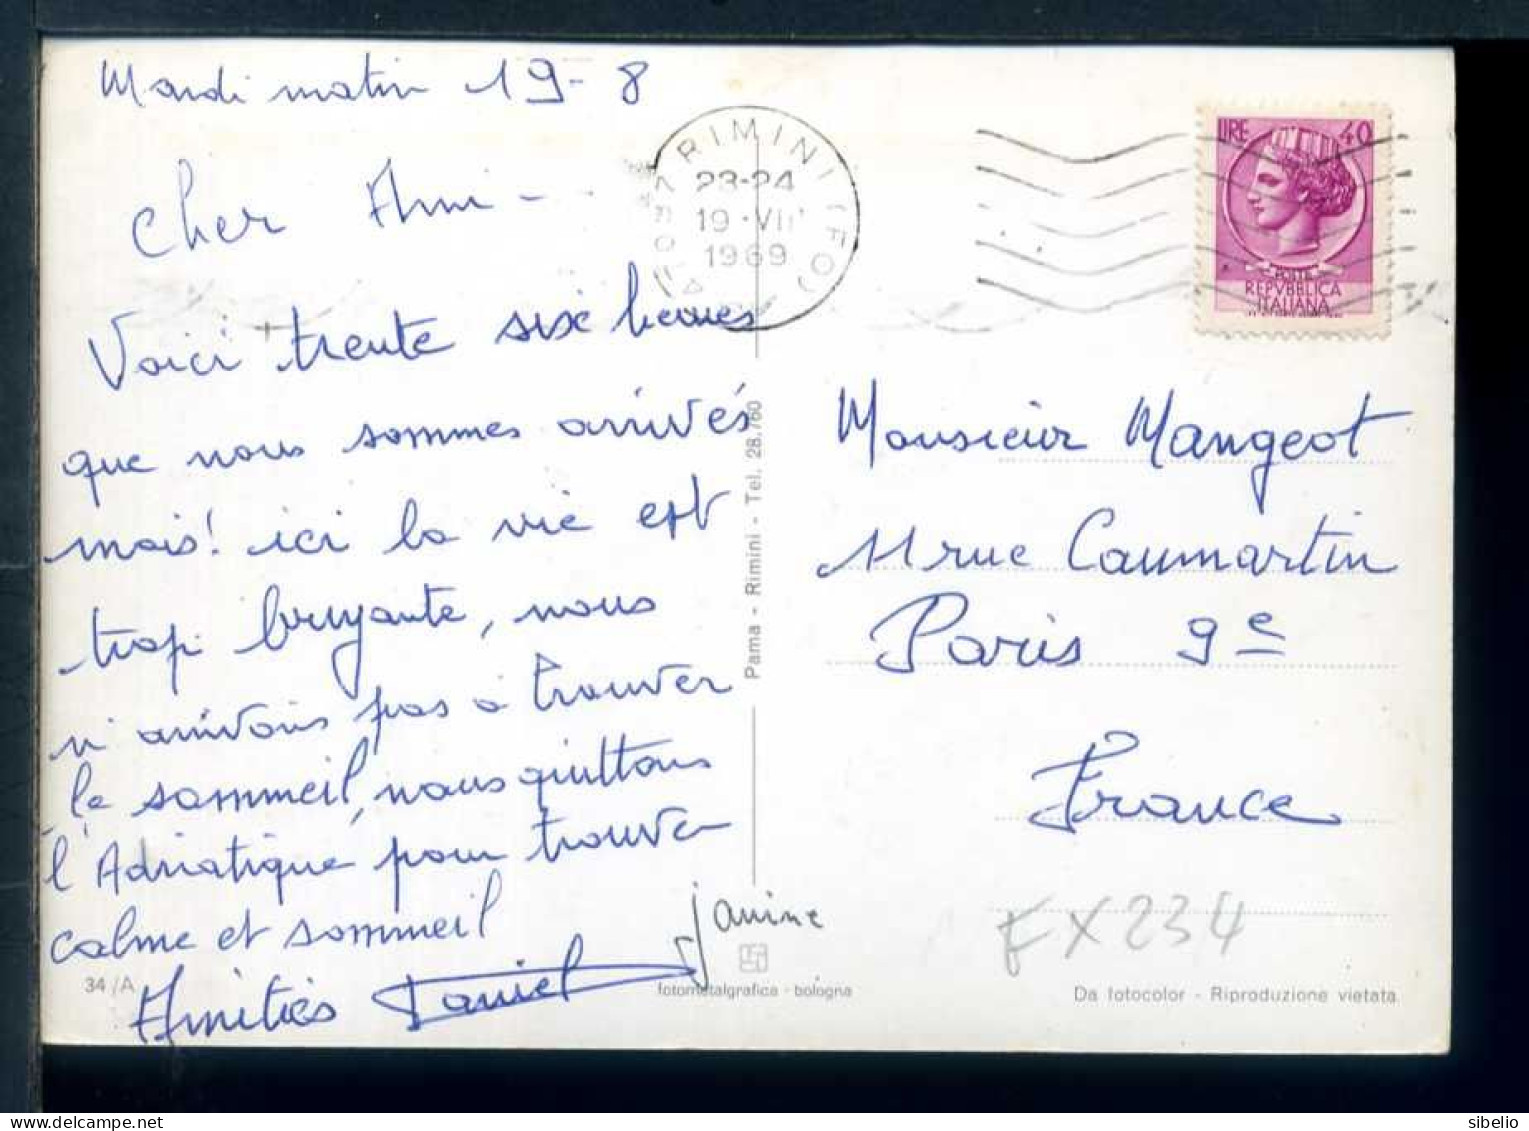 Mardi matin 19-8
Cher Ami -
Voici trente six heures
que nous sommes arrivés
mais! ici la vie est
trop bruyante, nous
n'arrivons pas à trouver
le sommeil, nous quittons
l'Adriatique pour trouver
calme et sommeil
Amitiés Daniel
Janine
34/A
RIMINI (FO)
23-24
19·VII
1969
LIRE 40
POSTE
REPVBBLICA
ITALIANA
Pama - Rimini - Tel. 28.760
Monsieur Mangeot
11 rue Caumartin
Paris 9e
France
FX234
fotometalgrafica - bologna
Da fotocolor - Riproduzione vietata
sibelio